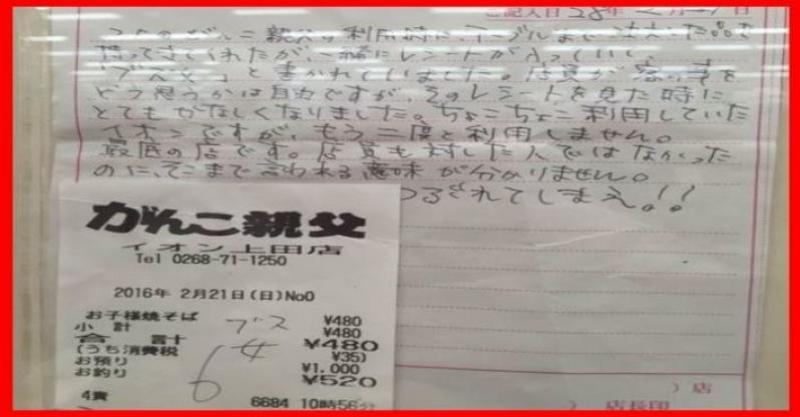 ご記入日 28年
利用時に、テーブルまで注文した品を
持ってきてくれたが、一緒にレシートが入っていて、
「ブス女」と書かれていました。店員が客の事を
どう思うかは自由ですが、そのレシートを見た時に
とてもかなしくなりました。ちょこちょこ利用していた
イオンですが、もう二度と利用しません。
最底の店です。店員も対した人ではなかった
のに、そこまで言われる意味が分かりません。
つぶれてしまえ!!
がんこ親父
イオン上田店
Tel 0268-71-1250
2016年 2月21日(日)No0
お子様焼そば ¥480
小 計 ¥480
合 計 ¥480
(うち消費税 ¥35)
お預り ¥1,000
お釣り ¥520
ブス
女
6
4責 6684 10時56分
) 店
店長印